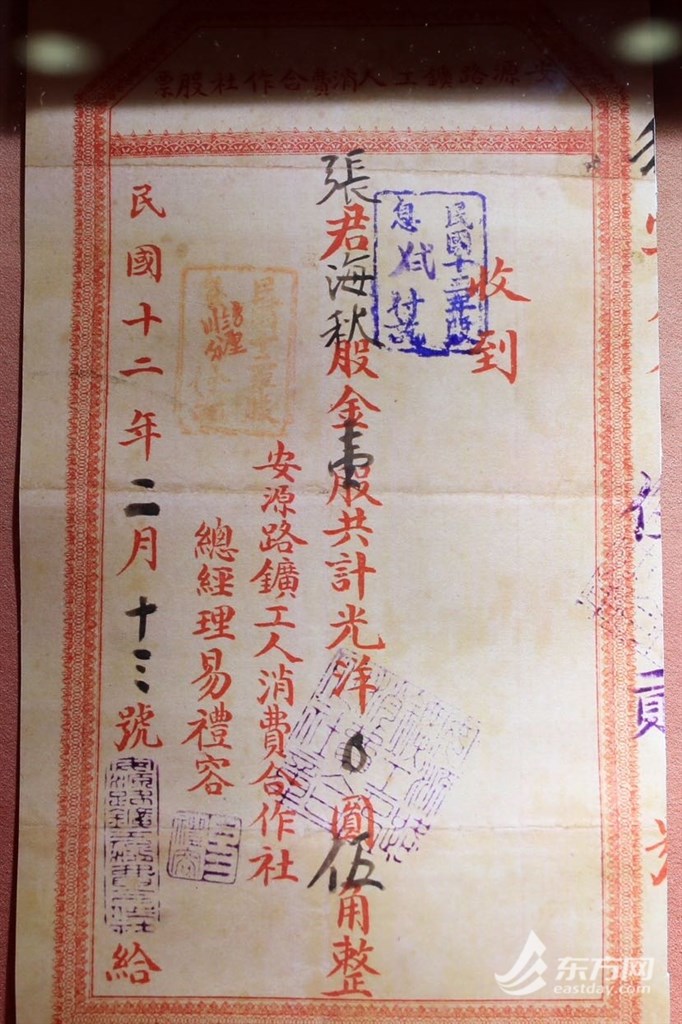 安源路鑛工人消費合作社股票
收到
張君海秋股金壹股共計光洋0圓伍角整
安源路鑛工人消費合作社
總經理易禮容
民國十二年二月十三號
給
民國十二年股
息
貳
东方网
eastday.com